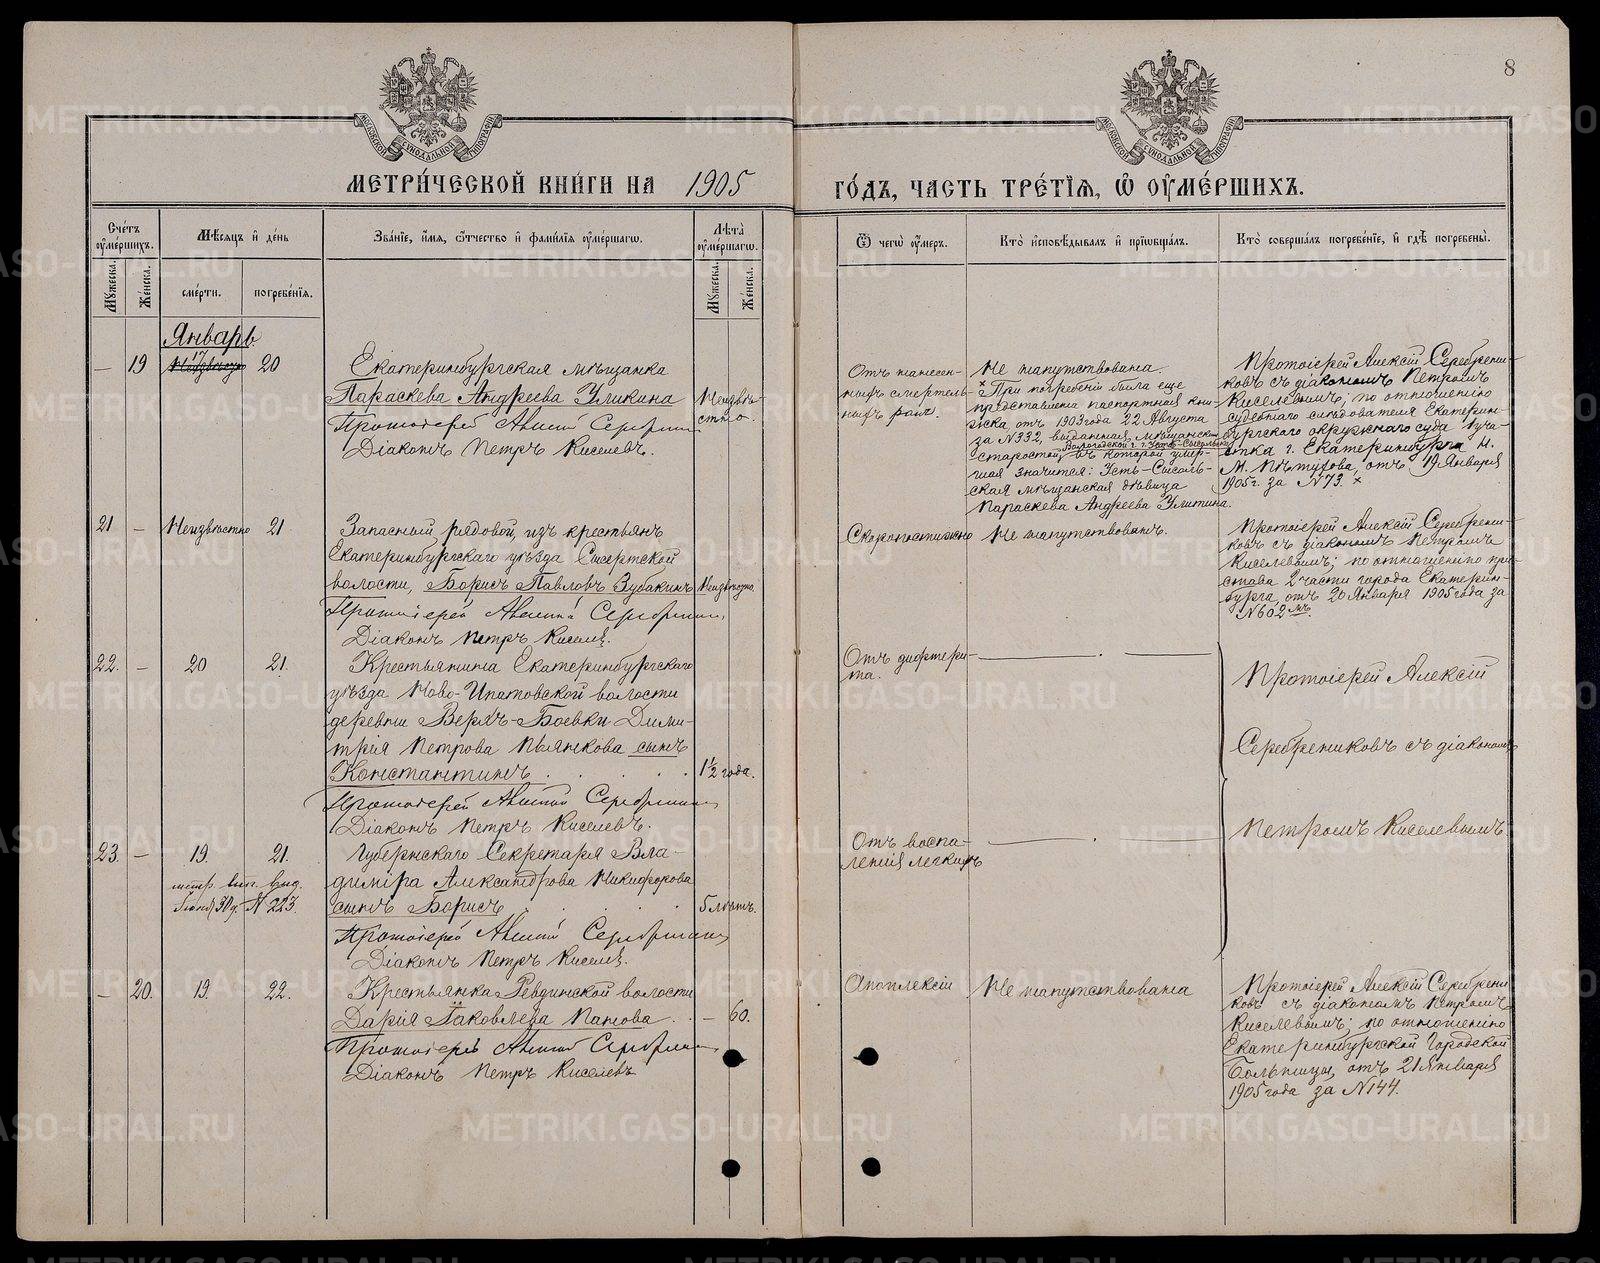 8
МЕТРИ́ЧЕСКОЙ КНИ́ГИ НА 1905
ГО́ДЪ, ЧАСТЬ ТРЕ́ТІЯ, Ѡ҆ ОУ҆МЕ́РШИХЪ.
Сче́тъ оу҆ме́ршихъ.
Мѣ́сяцъ и҆ де́нь
Зва́ніе, и҆́мя, ѻ҆́тчество и҆ фами́лія оу҆ме́ршагѡ.
Лѣ́та оу҆ме́ршагѡ.
Ѿ чегѡ̀ оу҆́меръ.
Кто̀ и҆сповѣ́дывалъ и҆ прїѡбща́лъ.
Кто̀ соверша́лъ погребе́ніе, и҆ гдѣ̀ погребены̀.
Му́жеска.
Же́нска.
сме́рти.
погребе́нія.
Му́жеска.
Же́нска.
Январь.
— 19
17
20
Екатеринбургская мѣщанка
Параскева Андреева Уликина
Неизвѣстно.
Протоіерей Алексій Серебренниковъ
Діаконъ Петръ Киселевъ.
Отъ нанесен-
ныхъ смертель-
ныхъ ранъ.
Не напутствована.
× При погребеніи была еще
представлена паспортная кни-
жка, отъ 1903 года 22 Августа
за № 332, выданная мѣщанскимъ
Вологодской г. г. Усть-Сысольска
старостой, въ которой умер-
шая значится: Усть-Сысоль-
ская мѣщанская дѣвица
Параскева Андреева Улитина.
Протоіерей Алексій Серебрени-
ковъ съ діакономъ Петромъ
Киселевымъ; по отношенію
судебнаго слѣдователя Екатерин-
бургскаго окружнаго суда 1 уча-
стка г. Екатеринбурга Н.
М. Пѣтухова, отъ 19 Января
1905 г. за № 73. ×
21 —
Неизвѣстно
21.
Запасный рядовой, изъ крестьянъ
Екатеринбургскаго уѣзда Сысертской
волости, Борисъ Павловъ Зубакинъ
Неизвѣстно.
Протоіерей Алексій Серебренниковъ
Діаконъ Петръ Киселевъ.
Скоропостижно
Не напутствованъ.
Протоіерей Алексій Серебрени-
ковъ съ діакономъ Петромъ
Киселевымъ; по отношенію при-
става 2 части города Екатерин-
бурга, отъ 20 Января 1905 года за
№ 602 мъ
22. —
20
21.
Крестьянина Екатеринбургскаго
уѣзда Ново-Ипатовской волости
деревни Верхъ-Боевки Дими-
трія Петрова Пьянкова сынъ
Константинъ . . . . .
1½ года.
Протоіерей Алексій Серебренниковъ
Діаконъ Петръ Киселевъ.
Отъ дифтери-
та.
Протоіерей Алексій
Серебрениковъ съ діакономъ
Петромъ Киселевымъ
23. —
19.
21.
метр. вып. выд.
30 № 223.
Губернскаго Секретаря Вла-
диміра Александрова Никифорова
сынъ Борисъ . . . . .
5 лѣтъ.
Протоіерей Алексій Серебренниковъ
Діаконъ Петръ Киселевъ.
Отъ воспа-
ленія легкихъ
— 20.
19.
22.
Крестьянка Ревдинской волости
Дарія Іаковлева Панова . .
— 60.
Протоіерей Алексій Серебренниковъ
Діаконъ Петръ Киселевъ
Апоплексіи
Не напутствована
Протоіерей Алексій Серебрени-
ковъ съ діакономъ Петромъ
Киселевымъ; по отношенію
Екатеринбургской Городской
Больницы, отъ 21 Января
1905 года за № 144.
METRIKI.GASO-URAL.RU